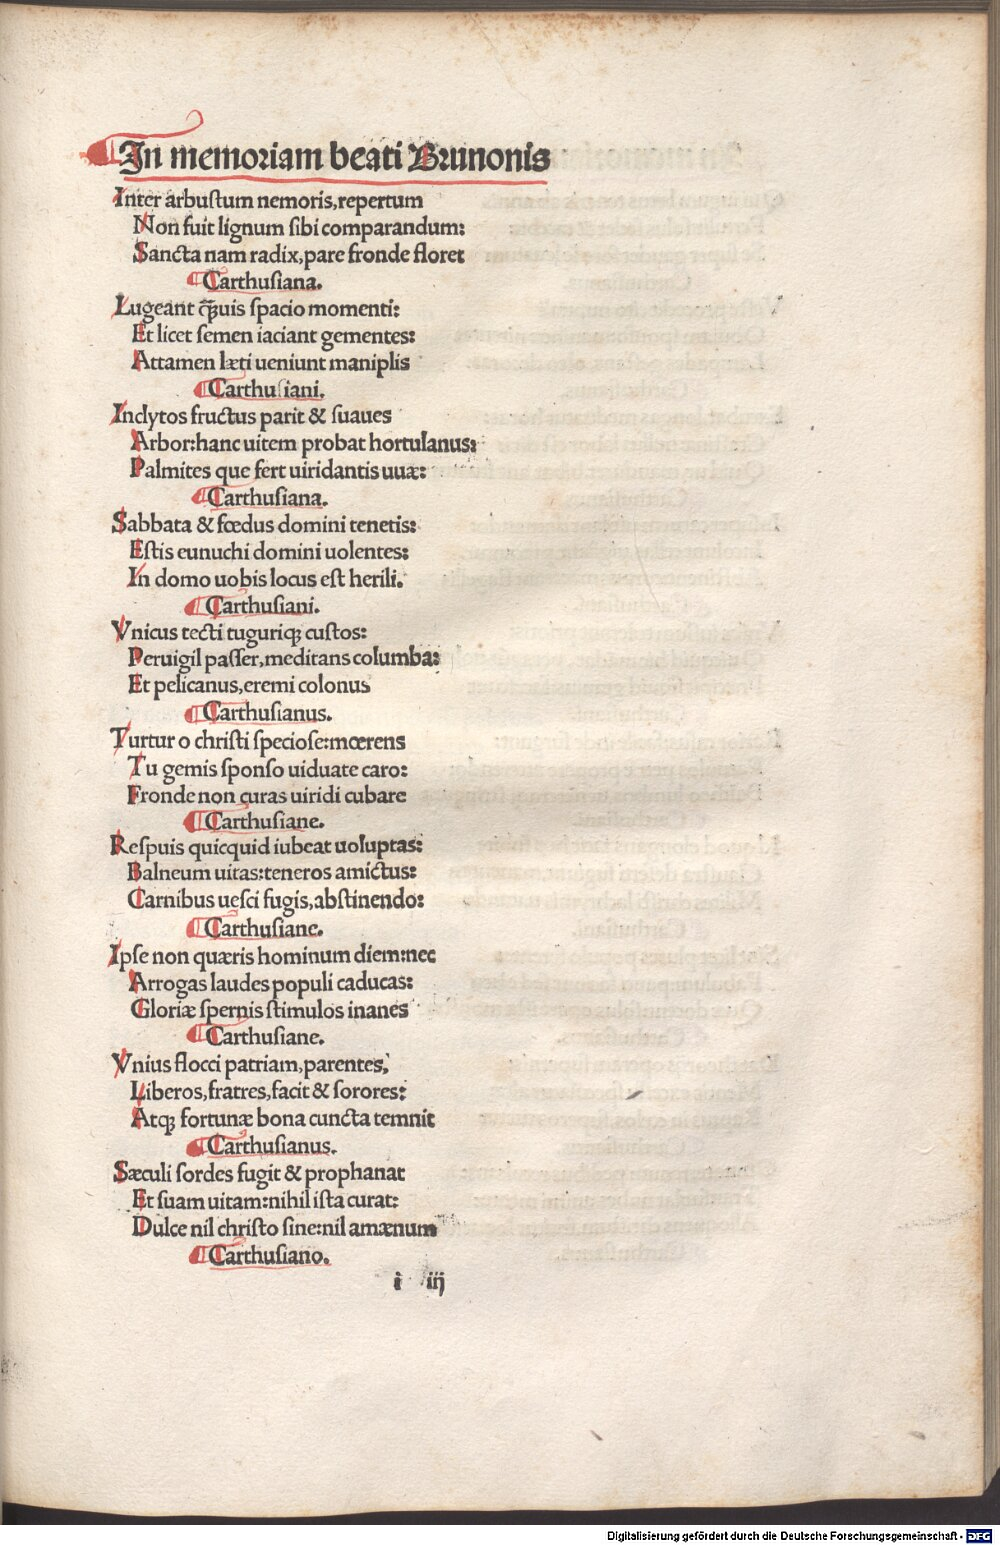 In memoriam beati Brunonis
Inter arbustum nemoris,repertum
Non fuit lignum sibi comparandum:
Sancta nam radix,pare fronde floret
Carthusiana.
Lugeant ꝙuis spacio momenti:
Et licet semen iaciant gementes:
Attamen læti ueniunt maniplis
Carthusiani.
Inclytos fructus parit & suaues
Arbor:hanc uitem probat hortulanus:
Palmites que fert uiridantis uuæ:
Carthusiana.
Sabbata & fœdus domini tenetis:
Estis eunuchi domini uolentes:
In domo uobis locus est herili.
Carthusiani.
Vnicus tecti tuguriqꝫ custos:
Peruigil passer,meditans columba:
Et pelicanus,eremi colonus
Carthusianus.
Turtur o christi speciose:mœrens
Tu gemis sponso uiduate caro:
Fronde non curas uiridi cubare
Carthusiane.
Respuis quicquid iubeat uoluptas:
Balneum uitas:teneros amictus:
Carnibus uesci fugis,abstinendo:
Carthusiane.
Ipse non quæris hominum diem:nec
Arrogas laudes populi caducas:
Gloriæ spernis stimulos inanes
Carthusiane.
Vnius flocci patriam,parentes,
Liberos,fratres,facit & sorores:
Atqꝫ fortunæ bona cuncta temnit
Carthusianus.
Sæculi sordes fugit & prophanat
Et suam uitam:nihil ista curat:
Dulce nil christo sine:nil amænum
Carthusiano.
i iij
Digitalisierung gefördert durch die Deutsche Forschungsgemeinschaft - DFG